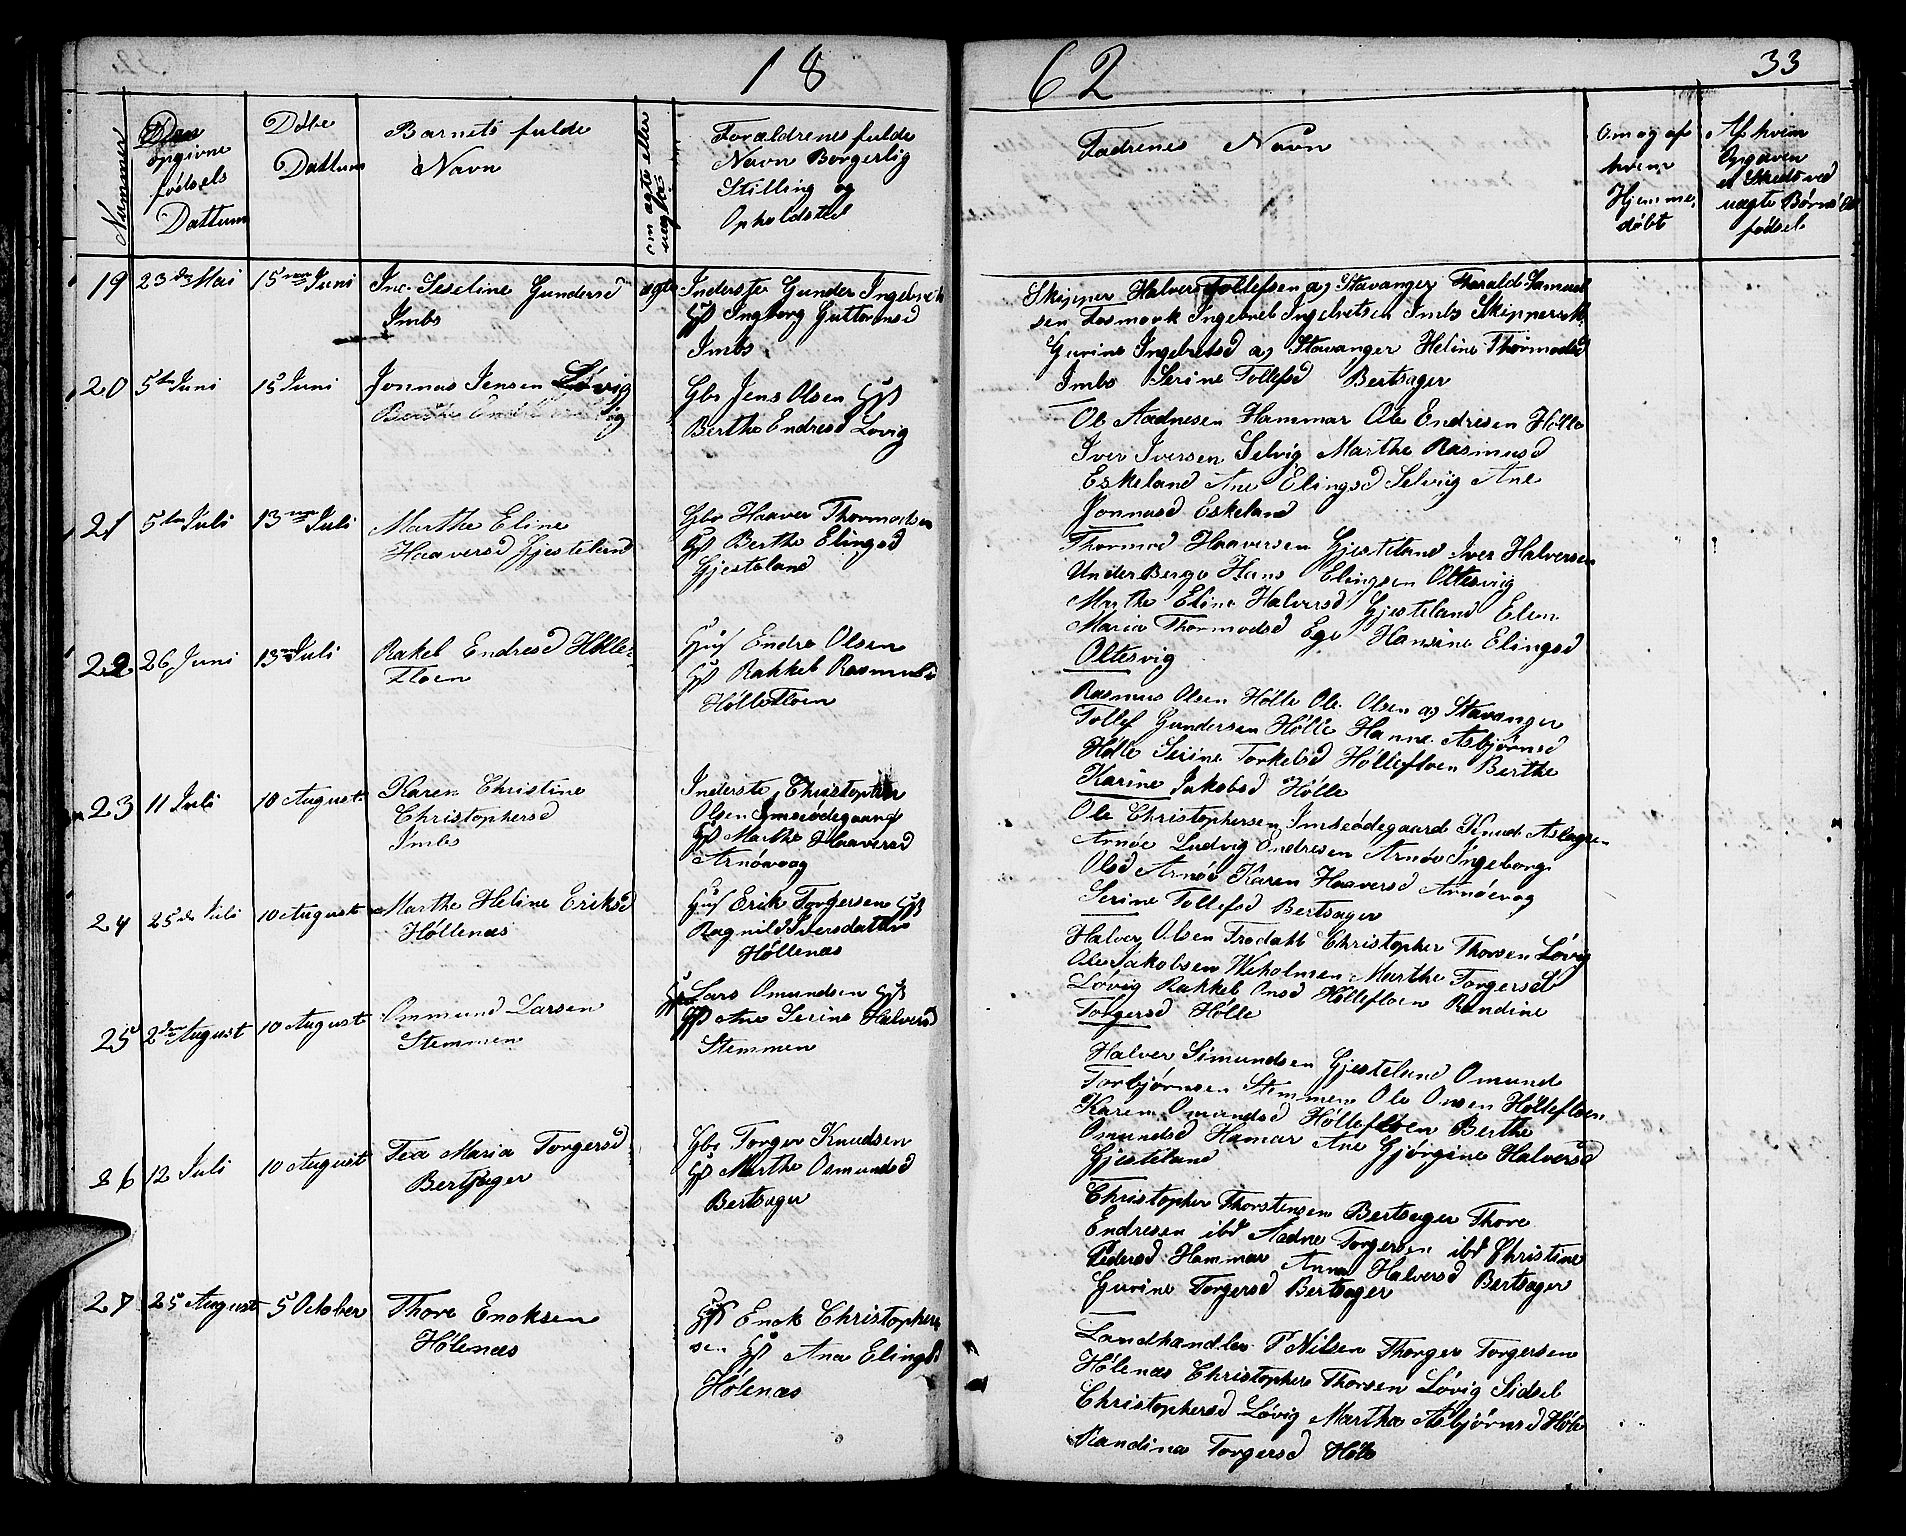 1862
33
Nummer
Den opgivne fødsels Dattum
Døbe Dattum
Barnets fulde Navn
om ægte eller uægte
Forældrenes fulde Navn Borgerlig Stilling og Opholdsted
Fadrenes Navn
Om og af hvem Hjemme døbt
Af hvem Opgaven er Skeet ved uægte Børns fødsel
19 23de Mai 15 Juni
Ine Seseline Gundersd
Imbs
ægte
Inderste Gunder Ingebret
Ingborg Guttormsd
Imbs
Skipper Halver Tollefsen ag Stavanger Tharald Samuel
sen Fosmark Ingebret Ingebretsen Imbs Skipper
Gurine Ingebretsd ag Stavanger Heline Thormodsd
Imbs Serine Tollefsd Bertsager
20 5te Juni 15 Juni
Jonnas Jensen Løvig
Gbr Jens Olsen
Berthe Endresd Løvig
Ole Aadnesen Hammar Ole Endresen Hølle
Iver Iversen Selvig Marthe Rasmusd
Eskeland Ane Elingsd Selvig Ane
Jonnasd Eskeland
21 5te Juli 13 Juli
Marthe Eline
Haaversd Gjesteland
Gbr Haaver Thormodsen
Berthe Elingsd
Gjesteland
Thormod Haaversen Gjesteland Iver Halversen
Under Berge Hans Elingsen Oltesvig
Marthe Eline Halversd Gjesteland Elen
Maria Thormodsd Ege Hansine Elingsd
Oltesvig
22 26 Juni 13 Juli
Rakel Endresd Hølle
Floen
Endre Olsen
Rakkel Rasmusd
HølleFloen
Rasmus Olsen Hølle Ole Olsen ag Stavanger
Tollef Gundersen Hølle Hanne Asbjørnsd
Hølle Serine Torkelsd Høllefloen Berthe
Karine Jakobsd Hølle
23 11 Juli 10 August
Karen Christine
Christophersd
Imbs
Inderste Christopher
Olsen Imseødegaard
Marthe Haaversd
Arnøevag
Ole Christophersen Imseødegaard Knud Aslagsen
Arnøe Ludvig Endresen Arnøe Ingeborg
Olsd Arnøe Karen Haaversd Arnøevag
Serine Tollefsd Bertsager
24 25de Juli 10 August
Marthe Heline Eriksd
Høllenæs
Erik Torgersen
Ragnild Iversdatter
Høllenæs
Halver Olsen Frodatt Christopher Thorsen Løvig
Ole Jakobsen Weholmen Marthe Torgersd
Løvig Rakkel Onsd Høllefloen Randine
Torgersd Hølle
25 2den August 10 August
Ommund Larsen
Stemmen
Lars Omundsen
Ane Serine Halversd
Stemmen
Halver Simundsen Gjesteland Omund
Torbjørnsen Stemmen Ole Onsen Høllefloen
Karen Omundsd Høllefloen Berthe
Omundsd Hamar Ane Gjørgine Halversd
Gjesteland
26 12 Juli 10 August
Tea Maria Torgersd
Bertsager
Gbr Torger Knudsen
Marthe Osmundsd
Bertsager
Christopher Thorstensen Bertsager Thore
Endresen ibd Aadne Torgersen ibd Christine
Pedersd Hammar Anna Halversd Bertsager
Gurine Torgersd Bertsager
27 25 August 5 October
Thore Enoksen
Hølenæs
Enok Christopher
sen Ane Elingsd
Hølenæs
Landhandler P Nilsen Thorger Torgersen
Hølenæs Christopher Thorsen Løvig Sidsel
Christophersd Løvig Martha Asbjørnsd Høle
Randina Torgersd Høle